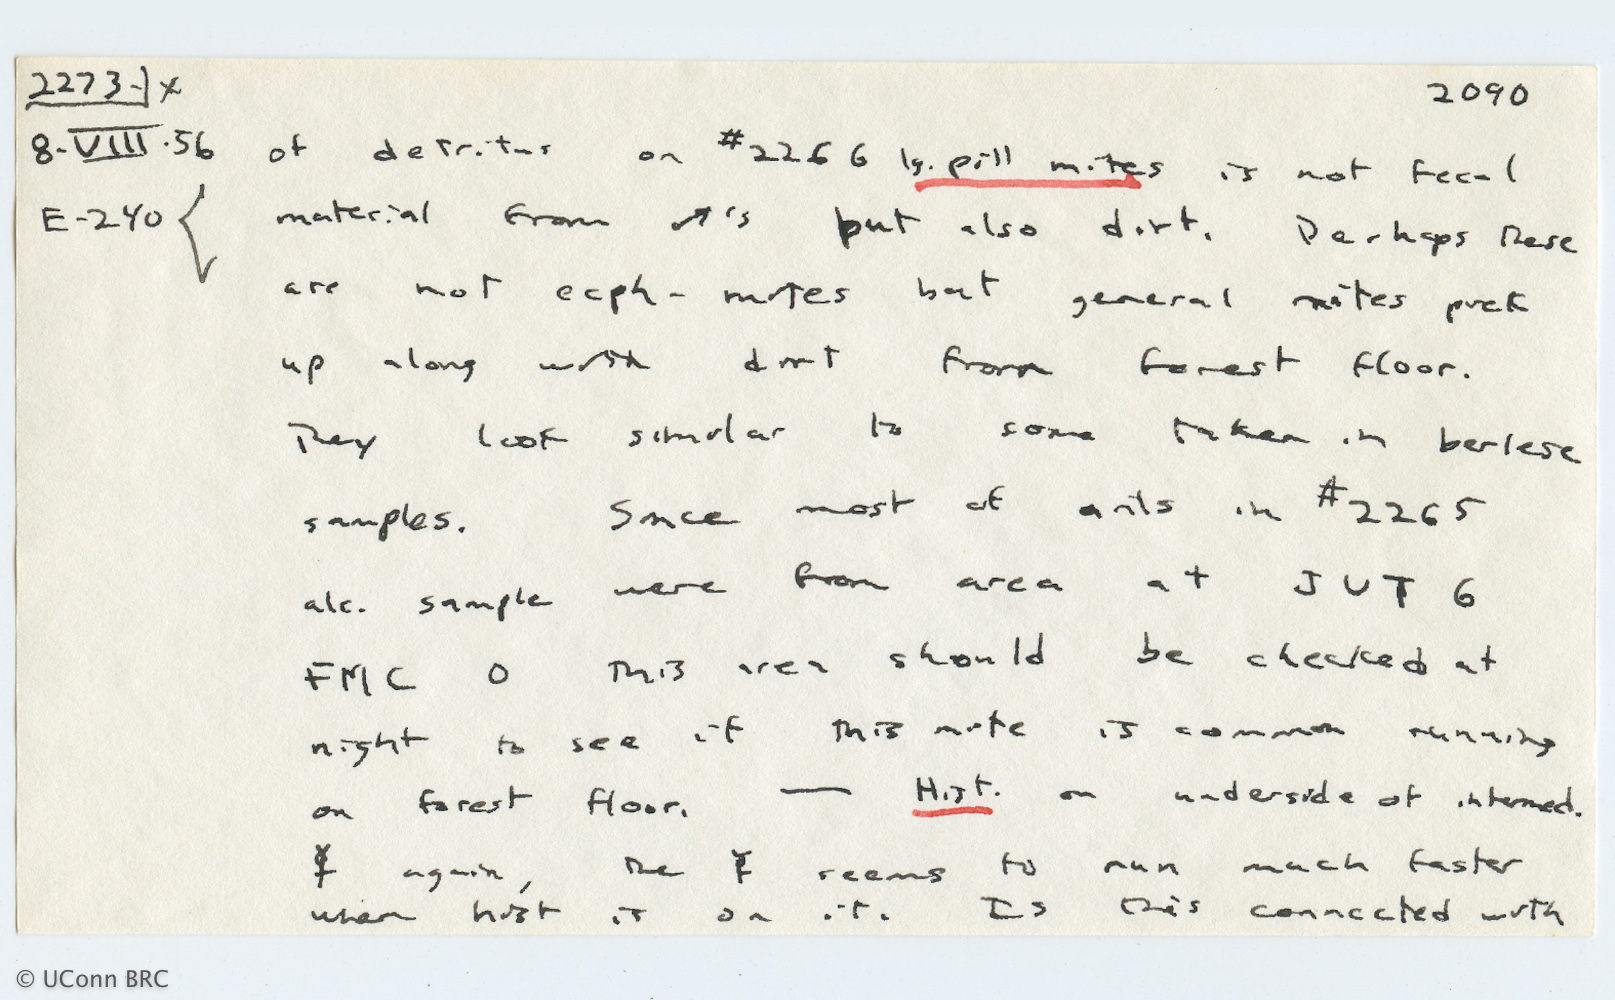 2273-1x 2090
8-VIII-56 of detritus on #2266 lg. pill mites is not fecal
E-240 { material from ♂'s but also dirt. Perhaps these
are not ecph- mites but general mites pick
up along with dirt from forest floor.
They look similar to some taken in berlese
samples. Since most of anils in #2265
alc. sample were from area at JUT 6
FMC 0 this area should be checked at
night to see if this mite is common running
on forest floor. — Hist. on underside of intermed.
☿ again, the ☿ seems to run much faster
when hist is on it. Is this connected with
© UConn BRC